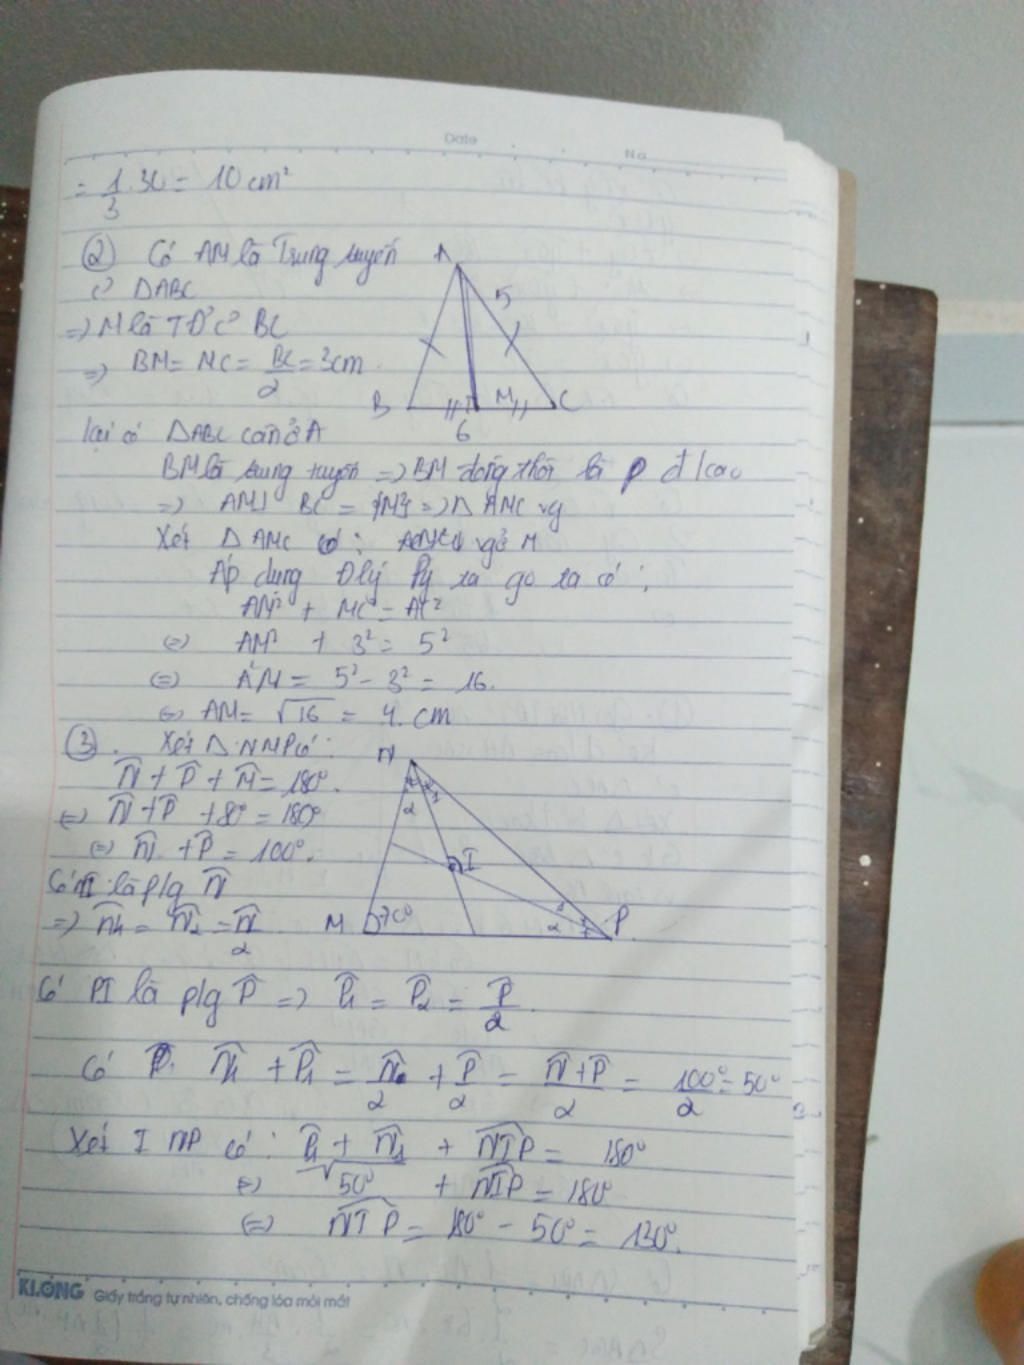 Date
No
= 1/3 . 30 = 10 cm²
② Có AM là Trung tuyến
c² ΔABC
=> M là TĐ² c² BC
=> BM = MC = BC/2 = 3cm
A
5
B
M
C
6
lại có ΔABC cân ở A
BM là trung tuyến => BM đồng thời là đ/cao
=> AM ⊥ BC = {M} => Δ AMC vg
Xét Δ AMC có : vg ở M
Áp dụng Đlý Py ta go ta có :
AM² + MC² = AC²
<=> AM² + 3² = 5²
<=> AM² = 5² - 3² = 16.
<=> AM = √16 = 4. cm
③. Xét Δ NMP có :
N̂ + P̂ + M̂ = 180°.
<=> N̂ + P̂ + 80° = 180°
<=> N̂ + P̂ = 100°.
Có NI là p/g N̂
=> N̂1 = N̂2 = N̂/2
N
2
1
I
M
P
1
2
Có PI là p/g P̂ => P̂1 = P̂2 = P̂/2
Có N̂1 + P̂1 = N̂/2 + P̂/2 = N̂+P̂/2 = 100°/2 = 50°
Xét I NP có : P̂1 + N̂1 + NIP = 180°
<=> 50° + NIP = 180°
<=> NIP = 180° - 50° = 130°.
KLONG Giấy trắng tự nhiên, chống lóa mỏi mắt